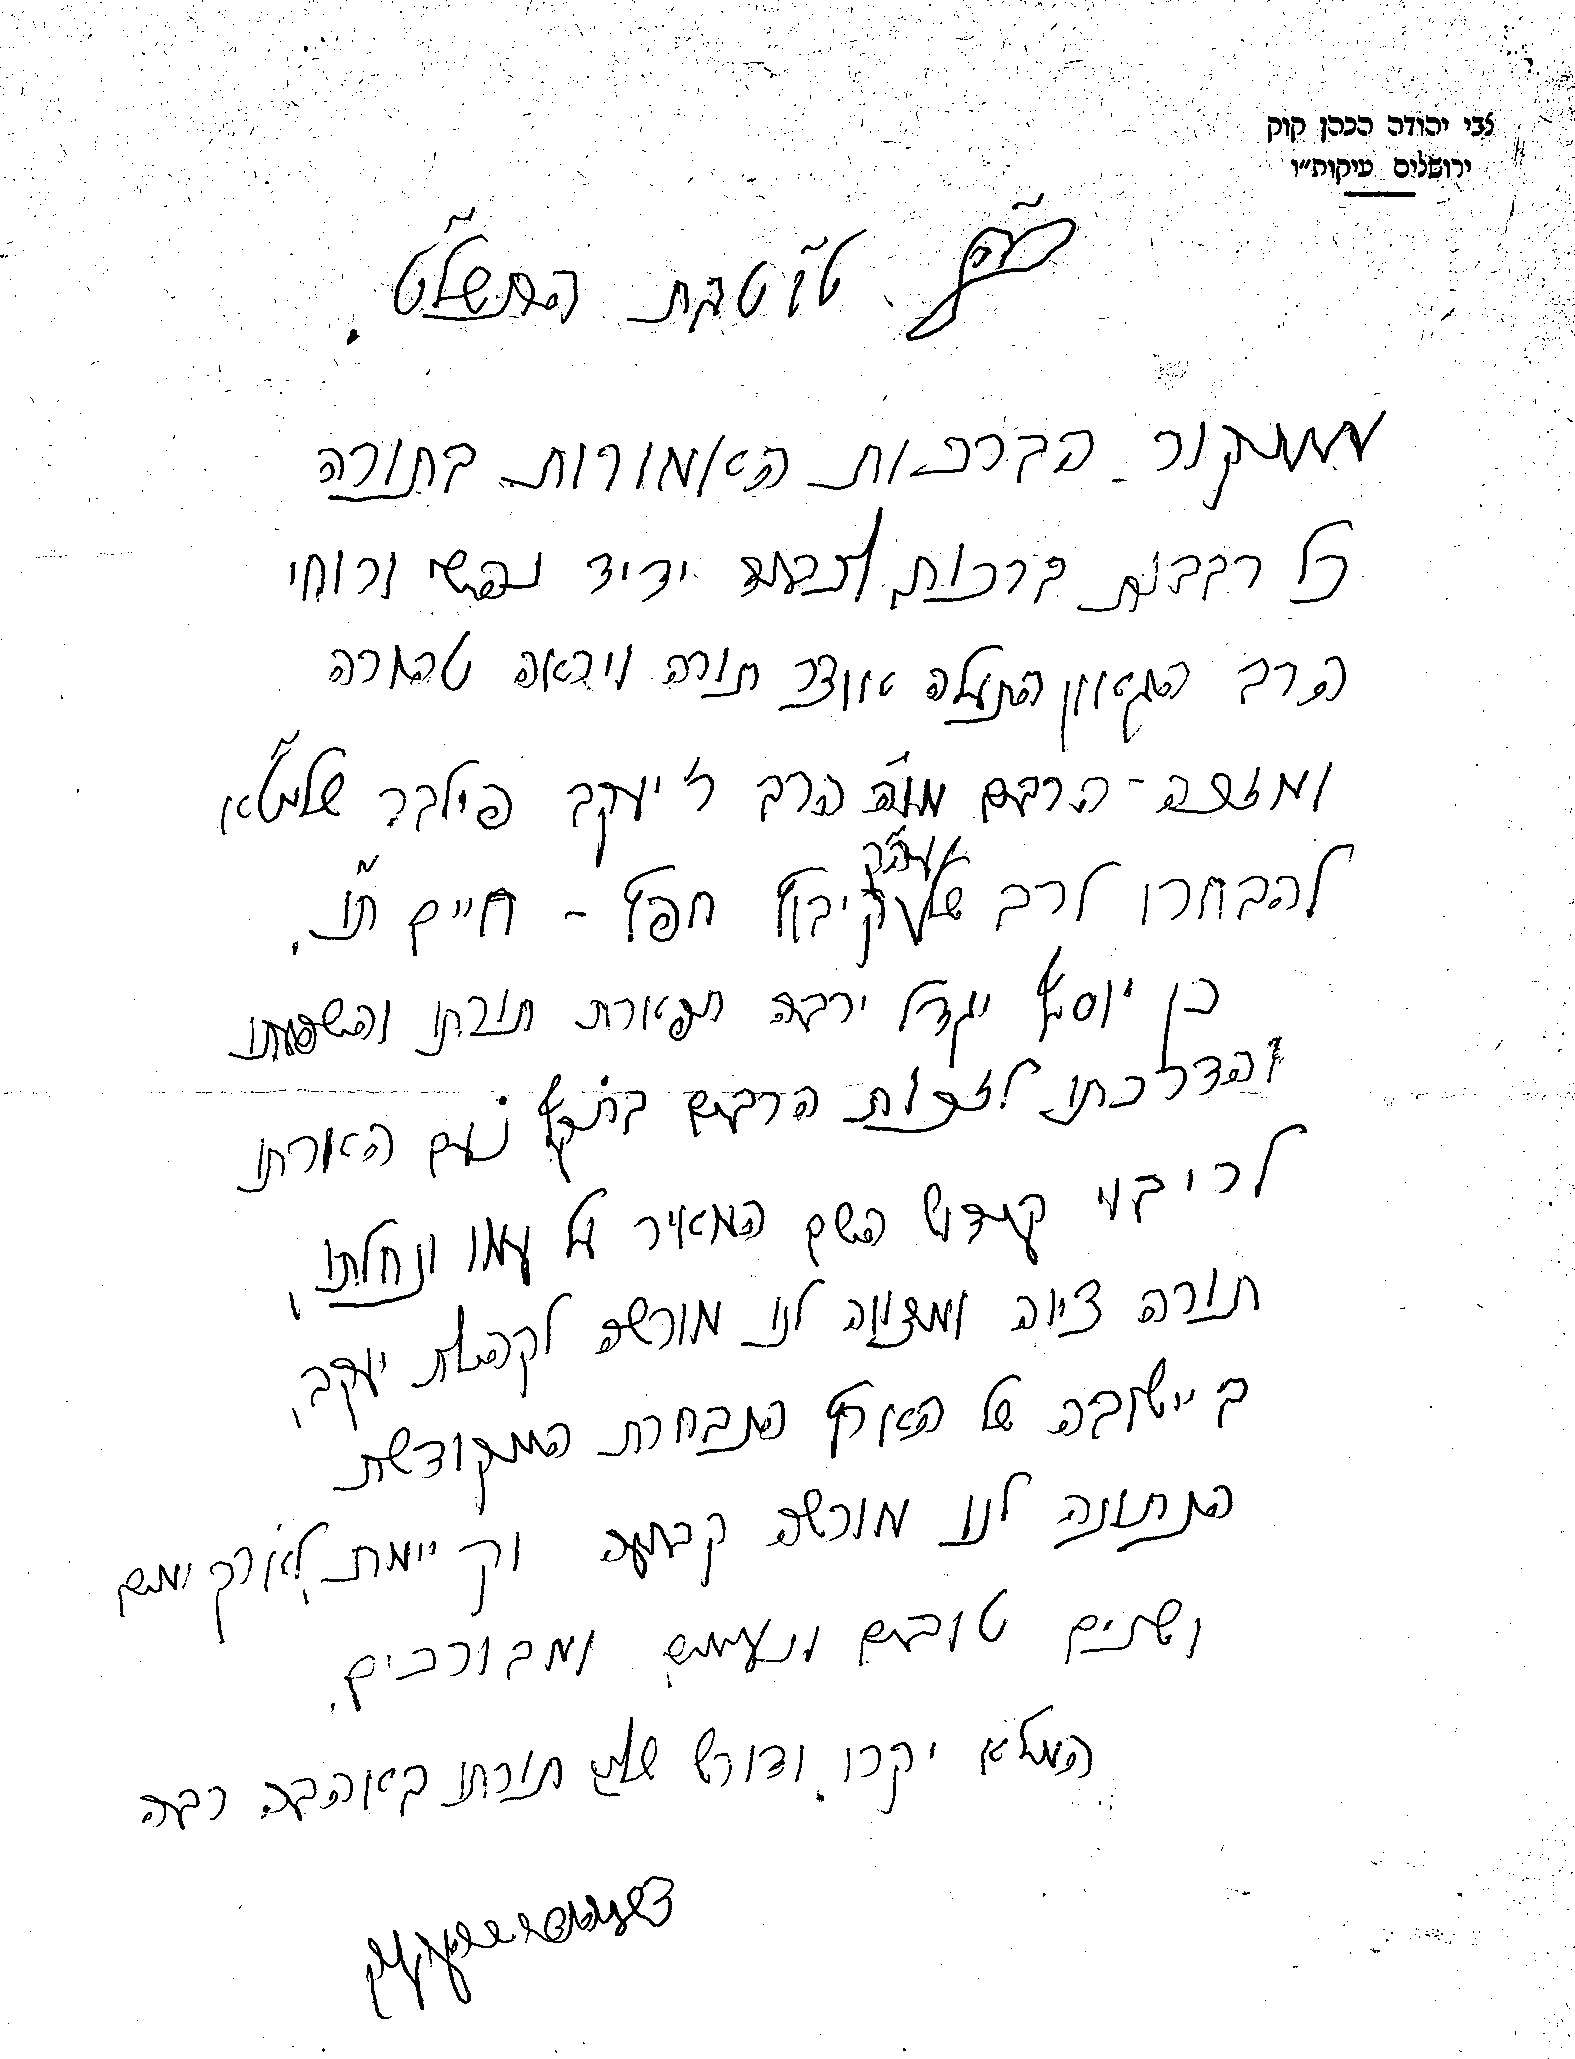 צבי יהודה הכהן קוק
ירושלים עיקות״ו
ב״ה ט״ו טבת התשל״ט.
ממקור הברכות האמורות בתורה
כל רבבות ברכות לכבוד ידיד נפשי ורוחי
הרב הגאון המעלה אוצר תורה ויראה טהורה
ומזכה-הרבים מו״ה הרב ר׳ יעקב פילבר שליט״א
להבחרו לרב של קיבוץ חפץ - חיים ת״ו.
כן יוסף יגדל ירבה תפארת תורתו והשפעתו
והדרכתו לזכות הרבים בתוקף נועם הארתו
לריבוי קידוש השם המאיר על עמו ונחלתו,
תורה ציוה ומצווה לנו מורשה לקהלת יעקב,
ביישובה של הארץ הנבחרת המקודשת
הנתונה לנו מורשה קבועה וקיימת לאורך ימים
ושנים טובים ונעימים ומבורכים.
המלא יקרו ודורש שלום תורתו באהבה רבה
צבי יהודה הכהן קוק